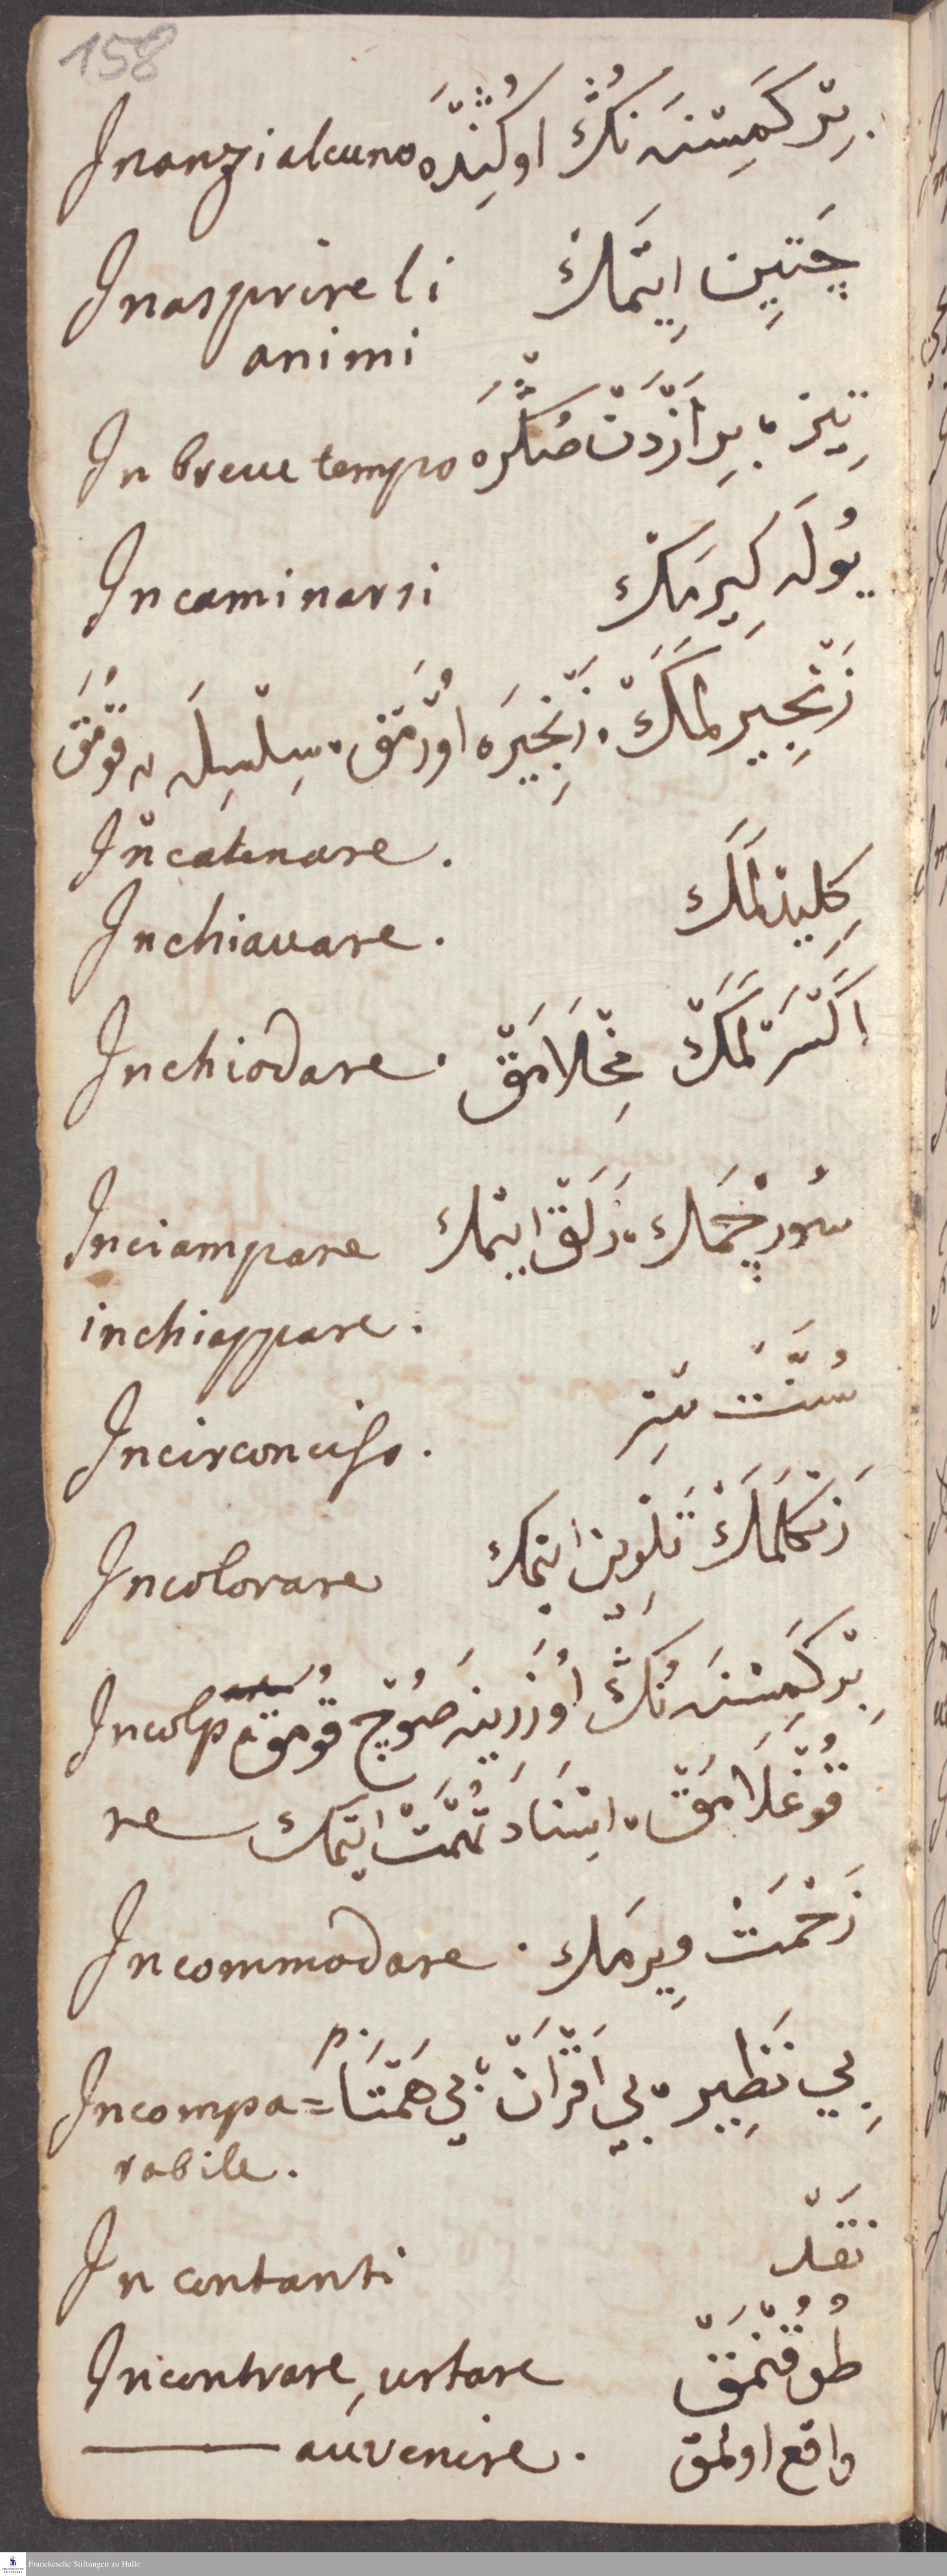 158
Inanzi alcuno بِرْ كَمِسْنَه نُكْ اوكِنْدَه
Inasprire li چَتِين اِيتْمَكْ
animi
In breue tempo تِيز ، بِر اَزْدَنْ صُكْرَه
Incaminarsi يُولَه كِيرمَكْ
زَنْجِيرلَمَكْ ، زَنْجِيرَه اُورْمَق ، سِلْسِلَه يه قُومَق
Incatenare.
Inchiauare. كِلِيدْلَمَك
Inchiodare. اَكْسَرْلَمَكْ مِخْلَامَقْ
Inciampare سُورچْمَك ، زَلَقْ ايتمك
inchiappare.
Incirconciso. سُنَّتْ سِز
Incolorare رَنْكْلَمَكْ تَلْوِين ايتمك
Incolpa بِرْ كَمِسْنَه نُكْ اُوزَرِينَه صُوچْ قُومَق
re قُوغْلَامَقْ ، اِسْنَاد تُهْمَتْ ايتمَك
Incommodare. زَحْمَتْ وِيرمَك
Incompa= بِي نَظِير ، بِي اَقْرَانْ ، بِي هَمْتَا p.
rabile.
In contanti نَقْد
Incontrare, urtare طُوقُنْمَقْ
auvenire. واقع اولمق
Franckesche Stiftungen zu Halle